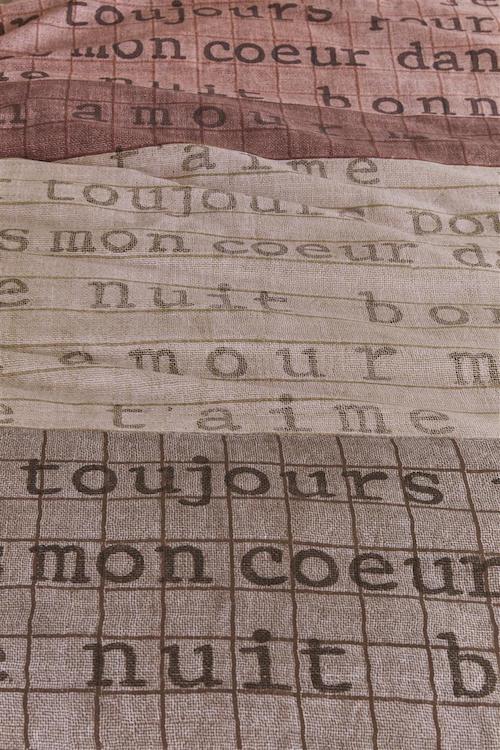 toujours
mon coeur dan
nuit bonn
amou
t'aime
toujours pou
s mon coeur d
e nuit bo
amour m
e t'aime
toujours
s mon coeur
e nuit b